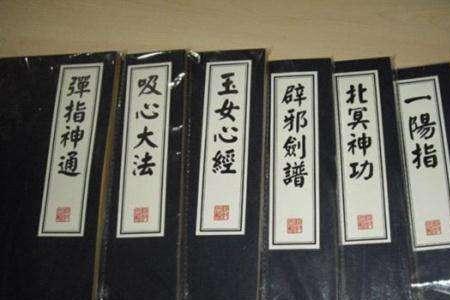 彈指神通
吸心大法
玉女心經
辟邪劍譜
北冥神功
一陽指